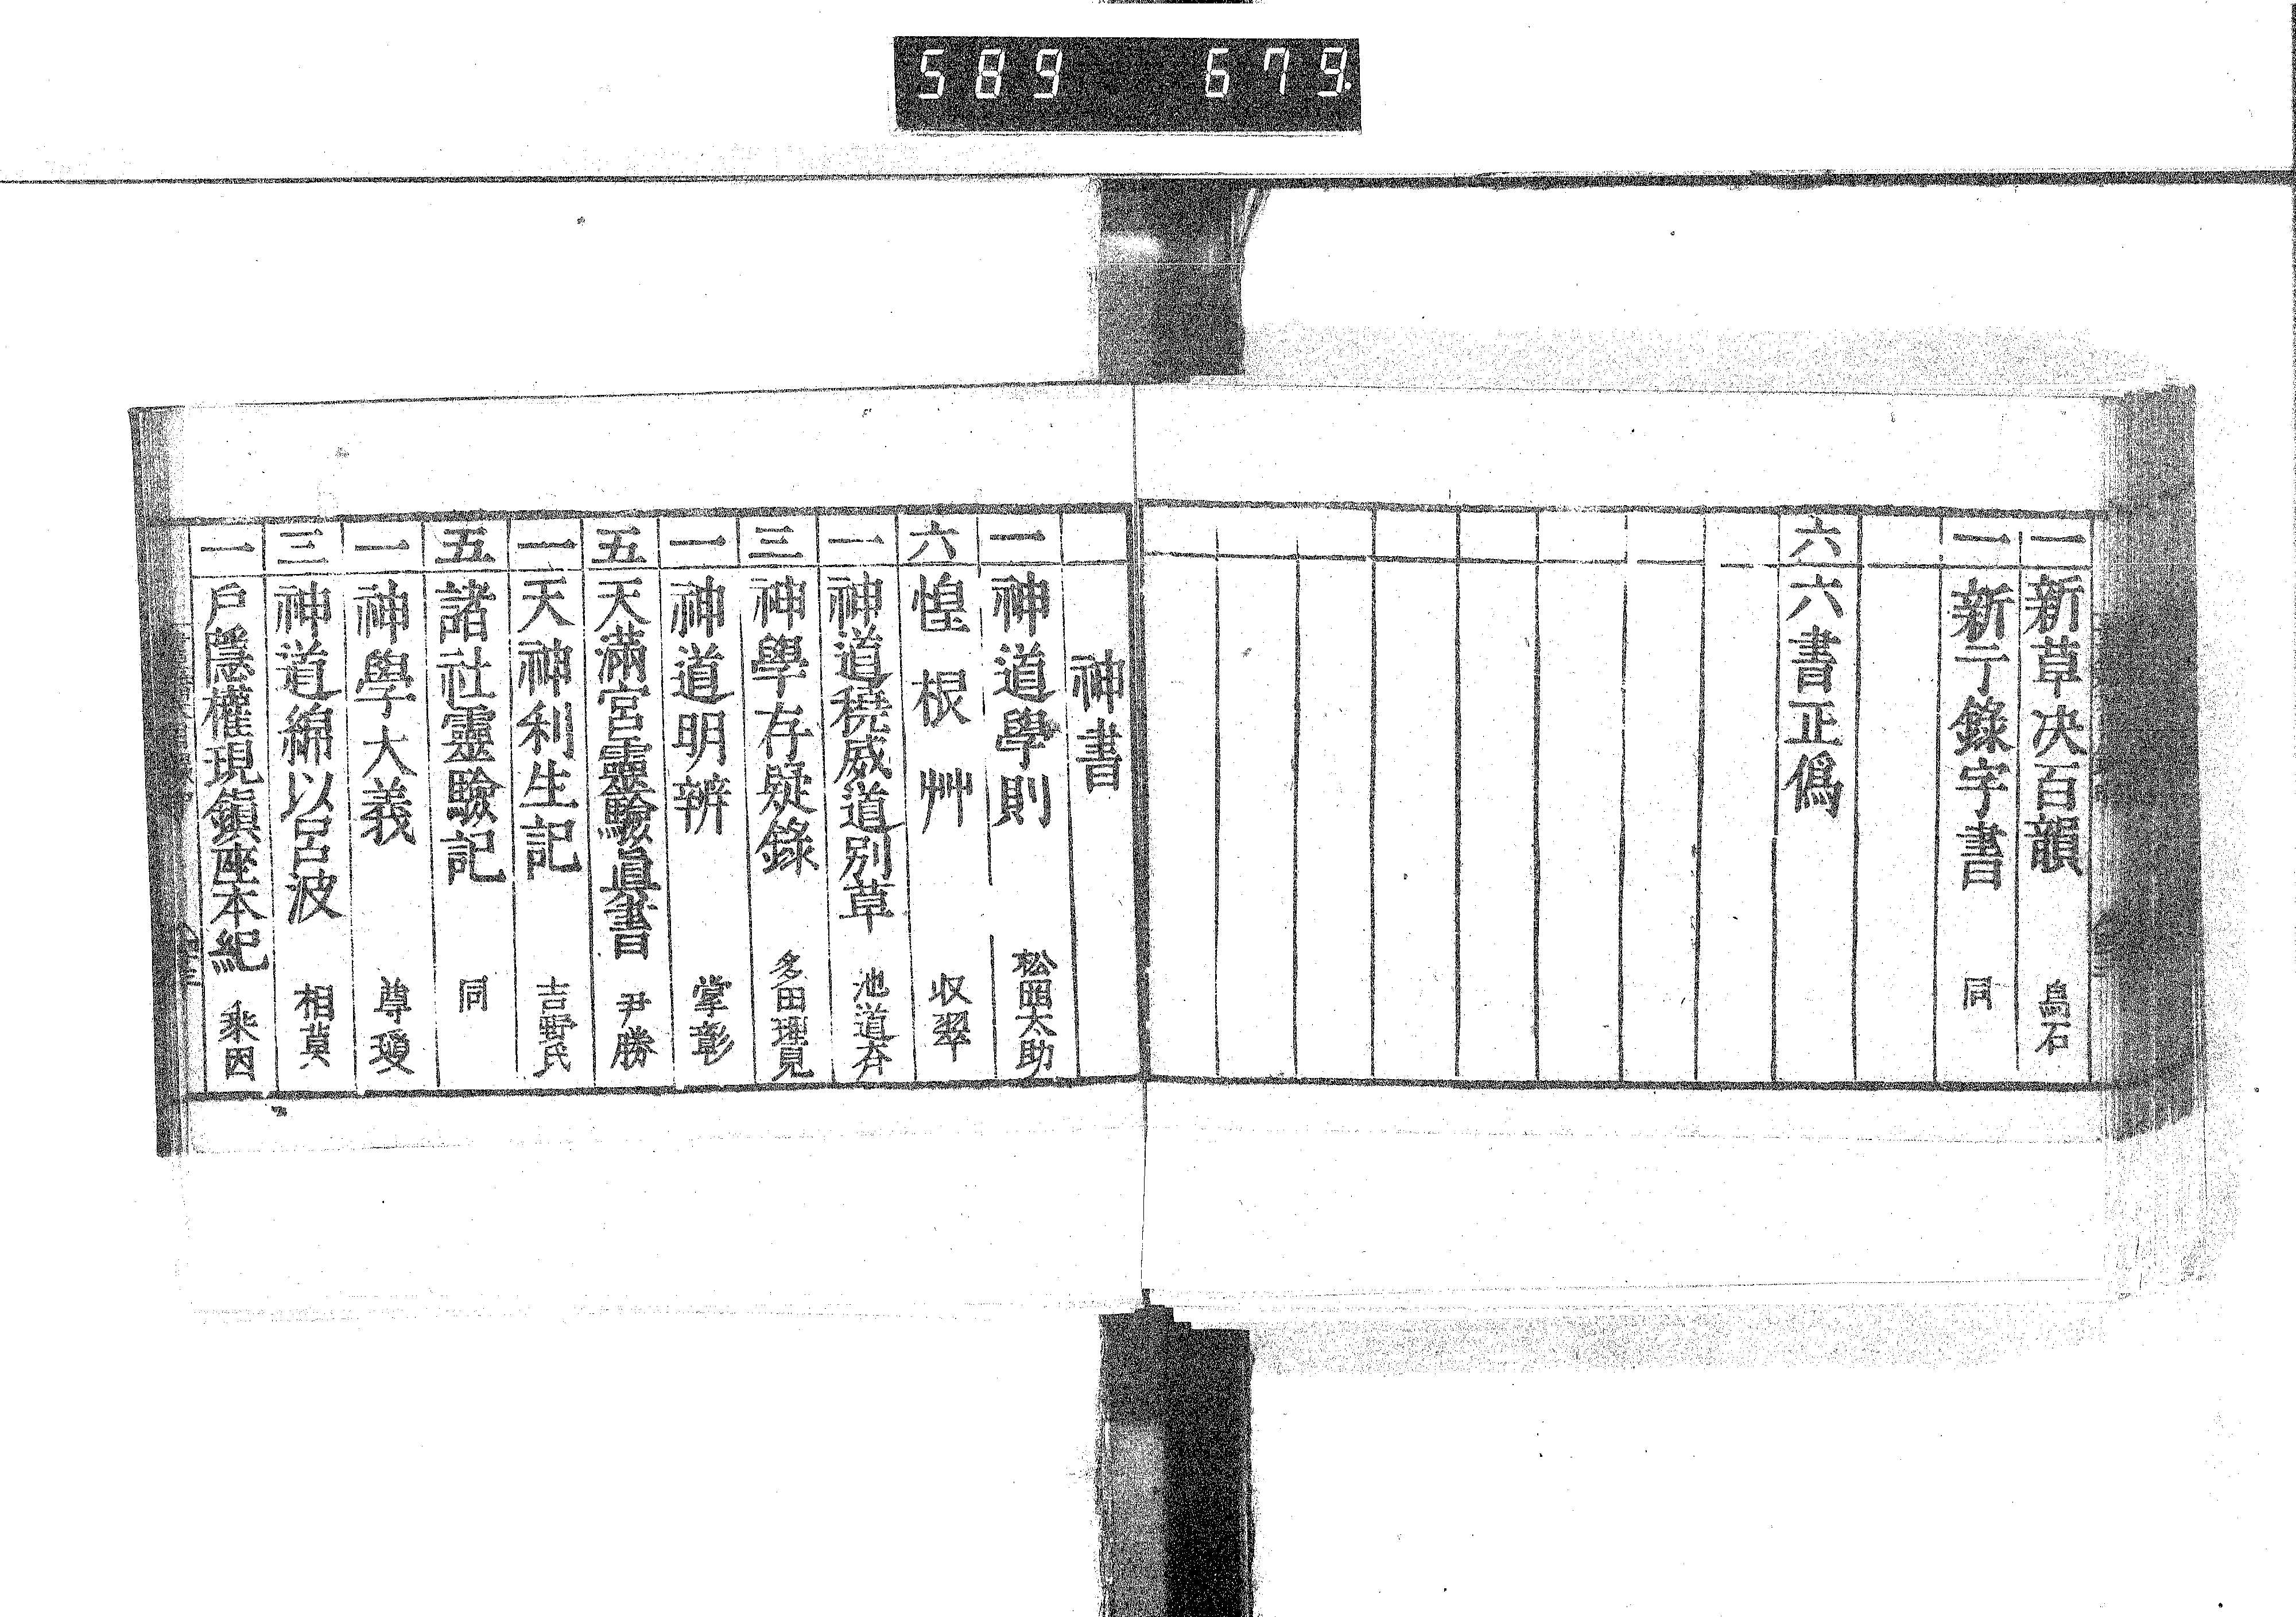 589 679.
一 新草决百韻 烏石
一 新亍錄字書 同
六 六書正僞
神書
一 神道學則 松岡太助
六 惶根艸 収翠
一 神道穐威道別草 池道斉
三 神學存疑錄 多田理見
一 神道明辨 掌彰
五 天滿宮靈驗眞書 尹勝
一 天神利生記 吉野氏
五 諸社靈驗記 同
一 神學大義 尊瓊
三 神道綿以呂波 相茛
一 戶隱權現鎭座本紀 乘因